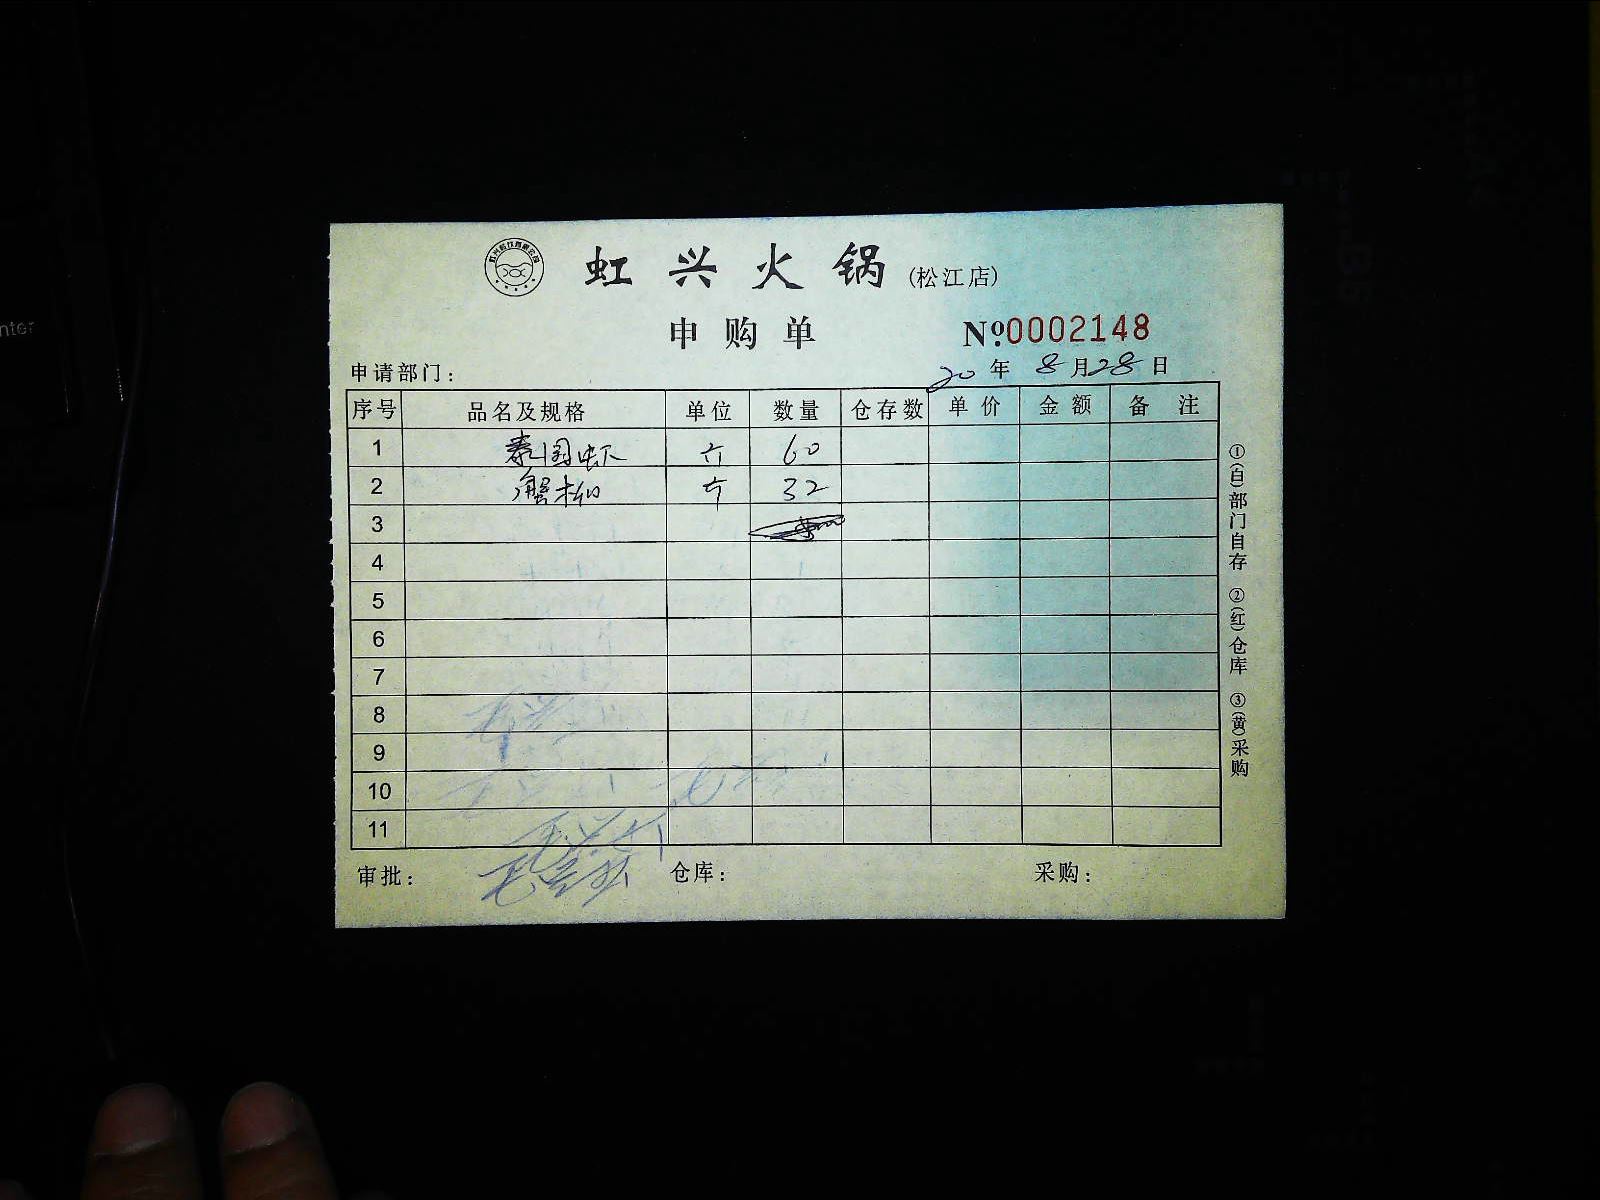 虹兴火锅(松江店)
申购单 №0002148
申请部门: 20年8月28日
序号 品名及规格 单位 数量 仓存数 单价 金额 备注
1 泰国虾 60
2 蟹柳 32
3
4
5
6
7
8
9
10
11
审批: 仓库: 采购:
①(白)部门自存 ②(红)仓库 ③(黄)采购
nter